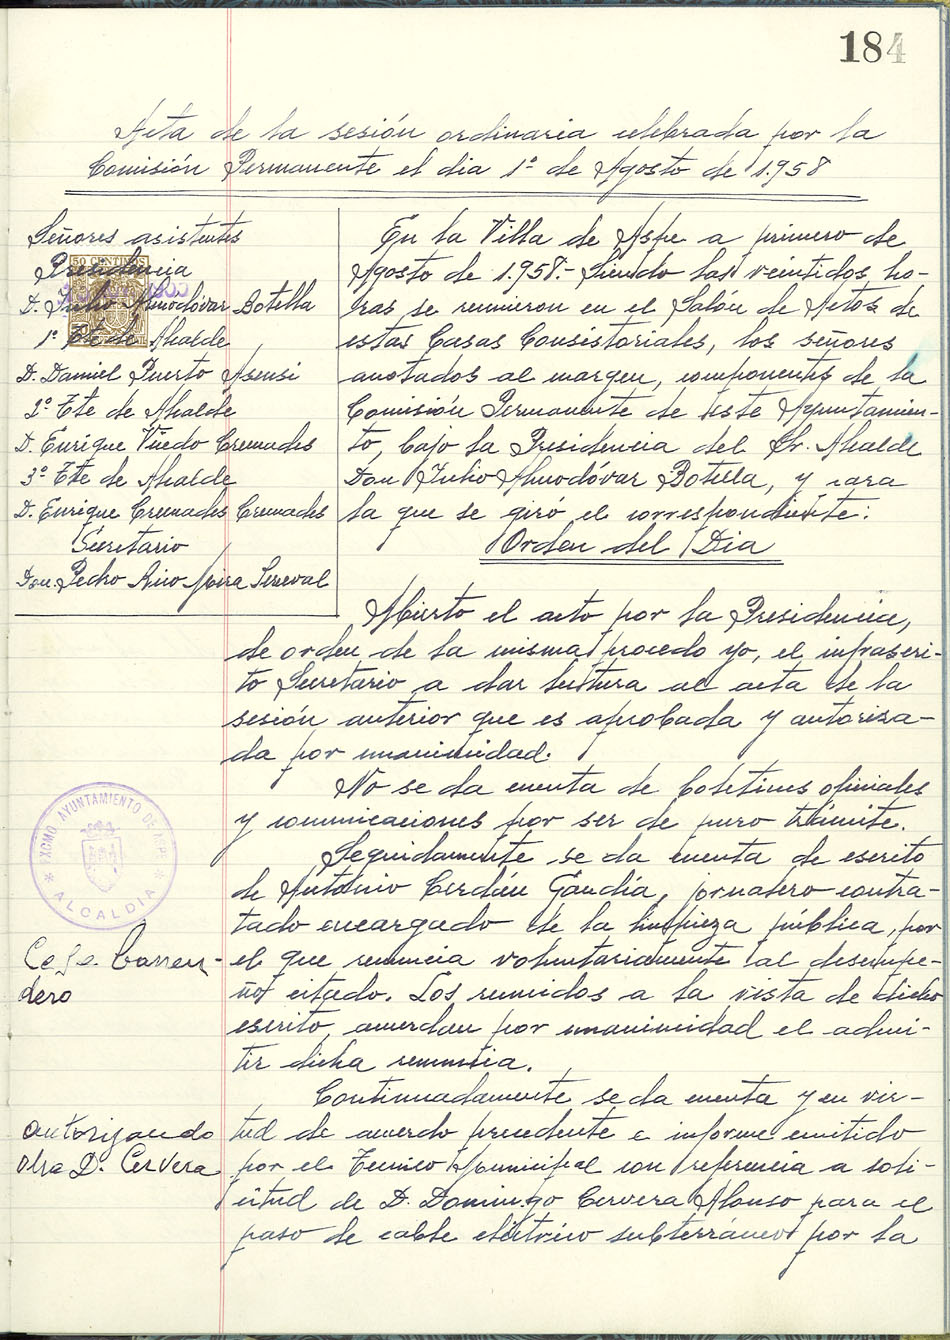 184
Acta de la sesión ordinaria celebrada por la
Comisión Permanente el dia 1º de Agosto de 1.958
Señores asistentes
50 CENTIMOS
Presidencia
D. Julio Almodóvar Botella
1º Tte de Alcalde
D. Daniel Puerto Asensi
2º Tte de Alcalde
D. Enrique Vicedo Cremades
3º Tte de Alcalde
D. Enrique Cremades Cremades
Secretario
Don Pedro Rico
En la Villa de Aspe a primero de
Agosto de 1.958.- Siendo las veintidos ho-
ras se reunieron en el Salón de Actos de
estas Casas Consistoriales, los señores
anotados al margen, componentes de la
Comisión Permanente de este Ayuntamien-
to, bajo la Presidencia del Sr. Alcalde
Don Julio Almodóvar Botella, y para
la que se giró el correspondiente:
Orden del Dia
Abierto el acto por la Presidencia,
de orden de la misma procedo yo, el infrascri-
to Secretario a dar lectura al acta de la
sesión anterior que es aprobada y autoriza-
da por unanimidad.
No se da cuenta de boletines oficiales
y comunicaciones por ser de puro trámite.
EXCMO. AYUNTAMIENTO DE ASPE
* ALCALDIA *
Seguidamente se da cuenta de escrito
de Antonio Cerdán Gandía, jornalero contra-
tado encargado de la limpieza pública, por
Cese barren-
dero
el que renuncia voluntariamente al desempe-
ño citado. Los reunidos a la vista de dicho
escrito, acuerdan por unanimidad el admi-
tir dicha renuncia.
Continuadamente se da cuenta y en vir-
autorizando
obra D. Cervera
tud de acuerdo precedente e informe emitido
por el Tecnico Municipal con referencia a soli-
citud de D. Domingo Cervera Alonso para el
paso de cable eléctrico subterráneo por la